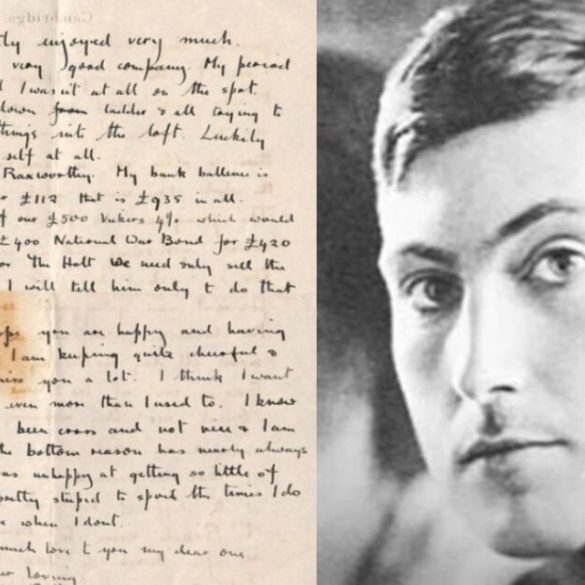 Cambridge.
tly enjoyed very much.
very good company. My period
I wasn't at all on the spot.
down from ladder & all trying to
things into the loft. Luckily
self at all.
Raxworthy. My bank ballence is
£112 that is £935 in all.
our £500 Vickers 4% which would
£400 National War Bond for £420
or The Holt we need only sell the
I will tell him only to do that
you are happy and having
I am keeping quite cheerful &
miss you a lot. I think I want
even more than I used to. I know
been cross and not nice & I am
the bottom reason has nearly always
was unhappy at getting so little of
pretty stupid to spoil the times I do
when I dont.
much love to you my dear one
Loving